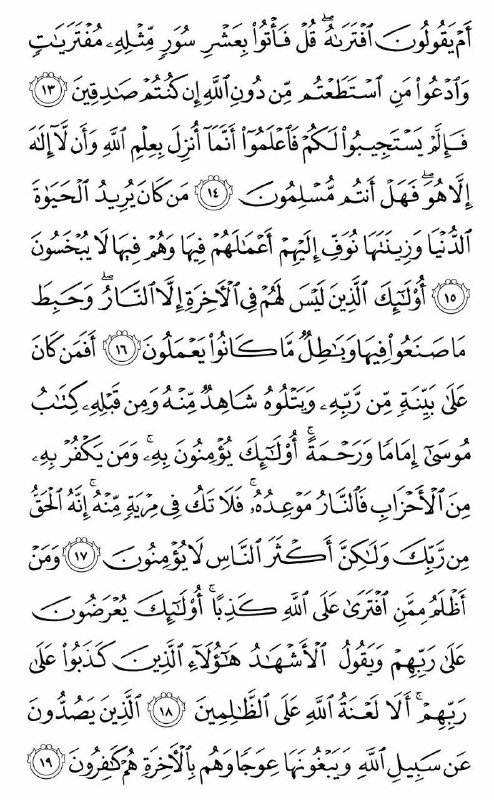 أَمۡ يَقُولُونَ ٱفۡتَرَىٰهُۖ قُلۡ فَأۡتُواْ بِعَشۡرِ سُوَرٖ مِّثۡلِهِۦ مُفۡتَرَيَٰتٖ
وَٱدۡعُواْ مَنِ ٱسۡتَطَعۡتُم مِّن دُونِ ٱللَّهِ إِن كُنتُمۡ صَٰدِقِينَ ١٣
فَإِلَّمۡ يَسۡتَجِيبُواْ لَكُمۡ فَٱعۡلَمُوٓاْ أَنَّمَآ أُنزِلَ بِعِلۡمِ ٱللَّهِ وَأَن لَّآ إِلَٰهَ
إِلَّا هُوَۖ فَهَلۡ أَنتُم مُّسۡلِمُونَ ١٤ مَن كَانَ يُرِيدُ ٱلۡحَيَوٰةَ
ٱلدُّنۡيَا وَزِينَتَهَا نُوَفِّ إِلَيۡهِمۡ أَعۡمَٰلَهُمۡ فِيهَا وَهُمۡ فِيهَا لَا يُبۡخَسُونَ
١٥ أُوْلَٰٓئِكَ ٱلَّذِينَ لَيۡسَ لَهُمۡ فِي ٱلۡأٓخِرَةِ إِلَّا ٱلنَّارُۖ وَحَبِطَ
مَا صَنَعُواْ فِيهَا وَبَٰطِلٞ مَّا كَانُواْ يَعۡمَلُونَ ١٦ أَفَمَن كَانَ
عَلَىٰ بَيِّنَةٖ مِّن رَّبِّهِۦ وَيَتۡلُوهُ شَاهِدٞ مِّنۡهُ وَمِن قَبۡلِهِۦ كِتَٰبُ
مُوسَىٰٓ إِمَامٗا وَرَحۡمَةًۚ أُوْلَٰٓئِكَ يُؤۡمِنُونَ بِهِۦۚ وَمَن يَكۡفُرۡ بِهِۦ
مِنَ ٱلۡأَحۡزَابِ فَٱلنَّارُ مَوۡعِدُهُۥۚ فَلَا تَكُ فِي مِرۡيَةٖ مِّنۡهُۚ إِنَّهُ ٱلۡحَقُّ
مِن رَّبِّكَ وَلَٰكِنَّ أَكۡثَرَ ٱلنَّاسِ لَا يُؤۡمِنُونَ ١٧ وَمَنۡ
أَظۡلَمُ مِمَّنِ ٱفۡتَرَىٰ عَلَى ٱللَّهِ كَذِبًاۚ أُوْلَٰٓئِكَ يُعۡرَضُونَ
عَلَىٰ رَبِّهِمۡ وَيَقُولُ ٱلۡأَشۡهَٰدُ هَٰٓؤُلَآءِ ٱلَّذِينَ كَذَبُواْ عَلَىٰ
رَبِّهِمۡۚ أَلَا لَعۡنَةُ ٱللَّهِ عَلَى ٱلظَّٰلِمِينَ ١٨ ٱلَّذِينَ يَصُدُّونَ
عَن سَبِيلِ ٱللَّهِ وَيَبۡغُونَهَا عِوَجٗا وَهُم بِٱلۡأٓخِرَةِ هُمۡ كَٰفِرُونَ ١٩